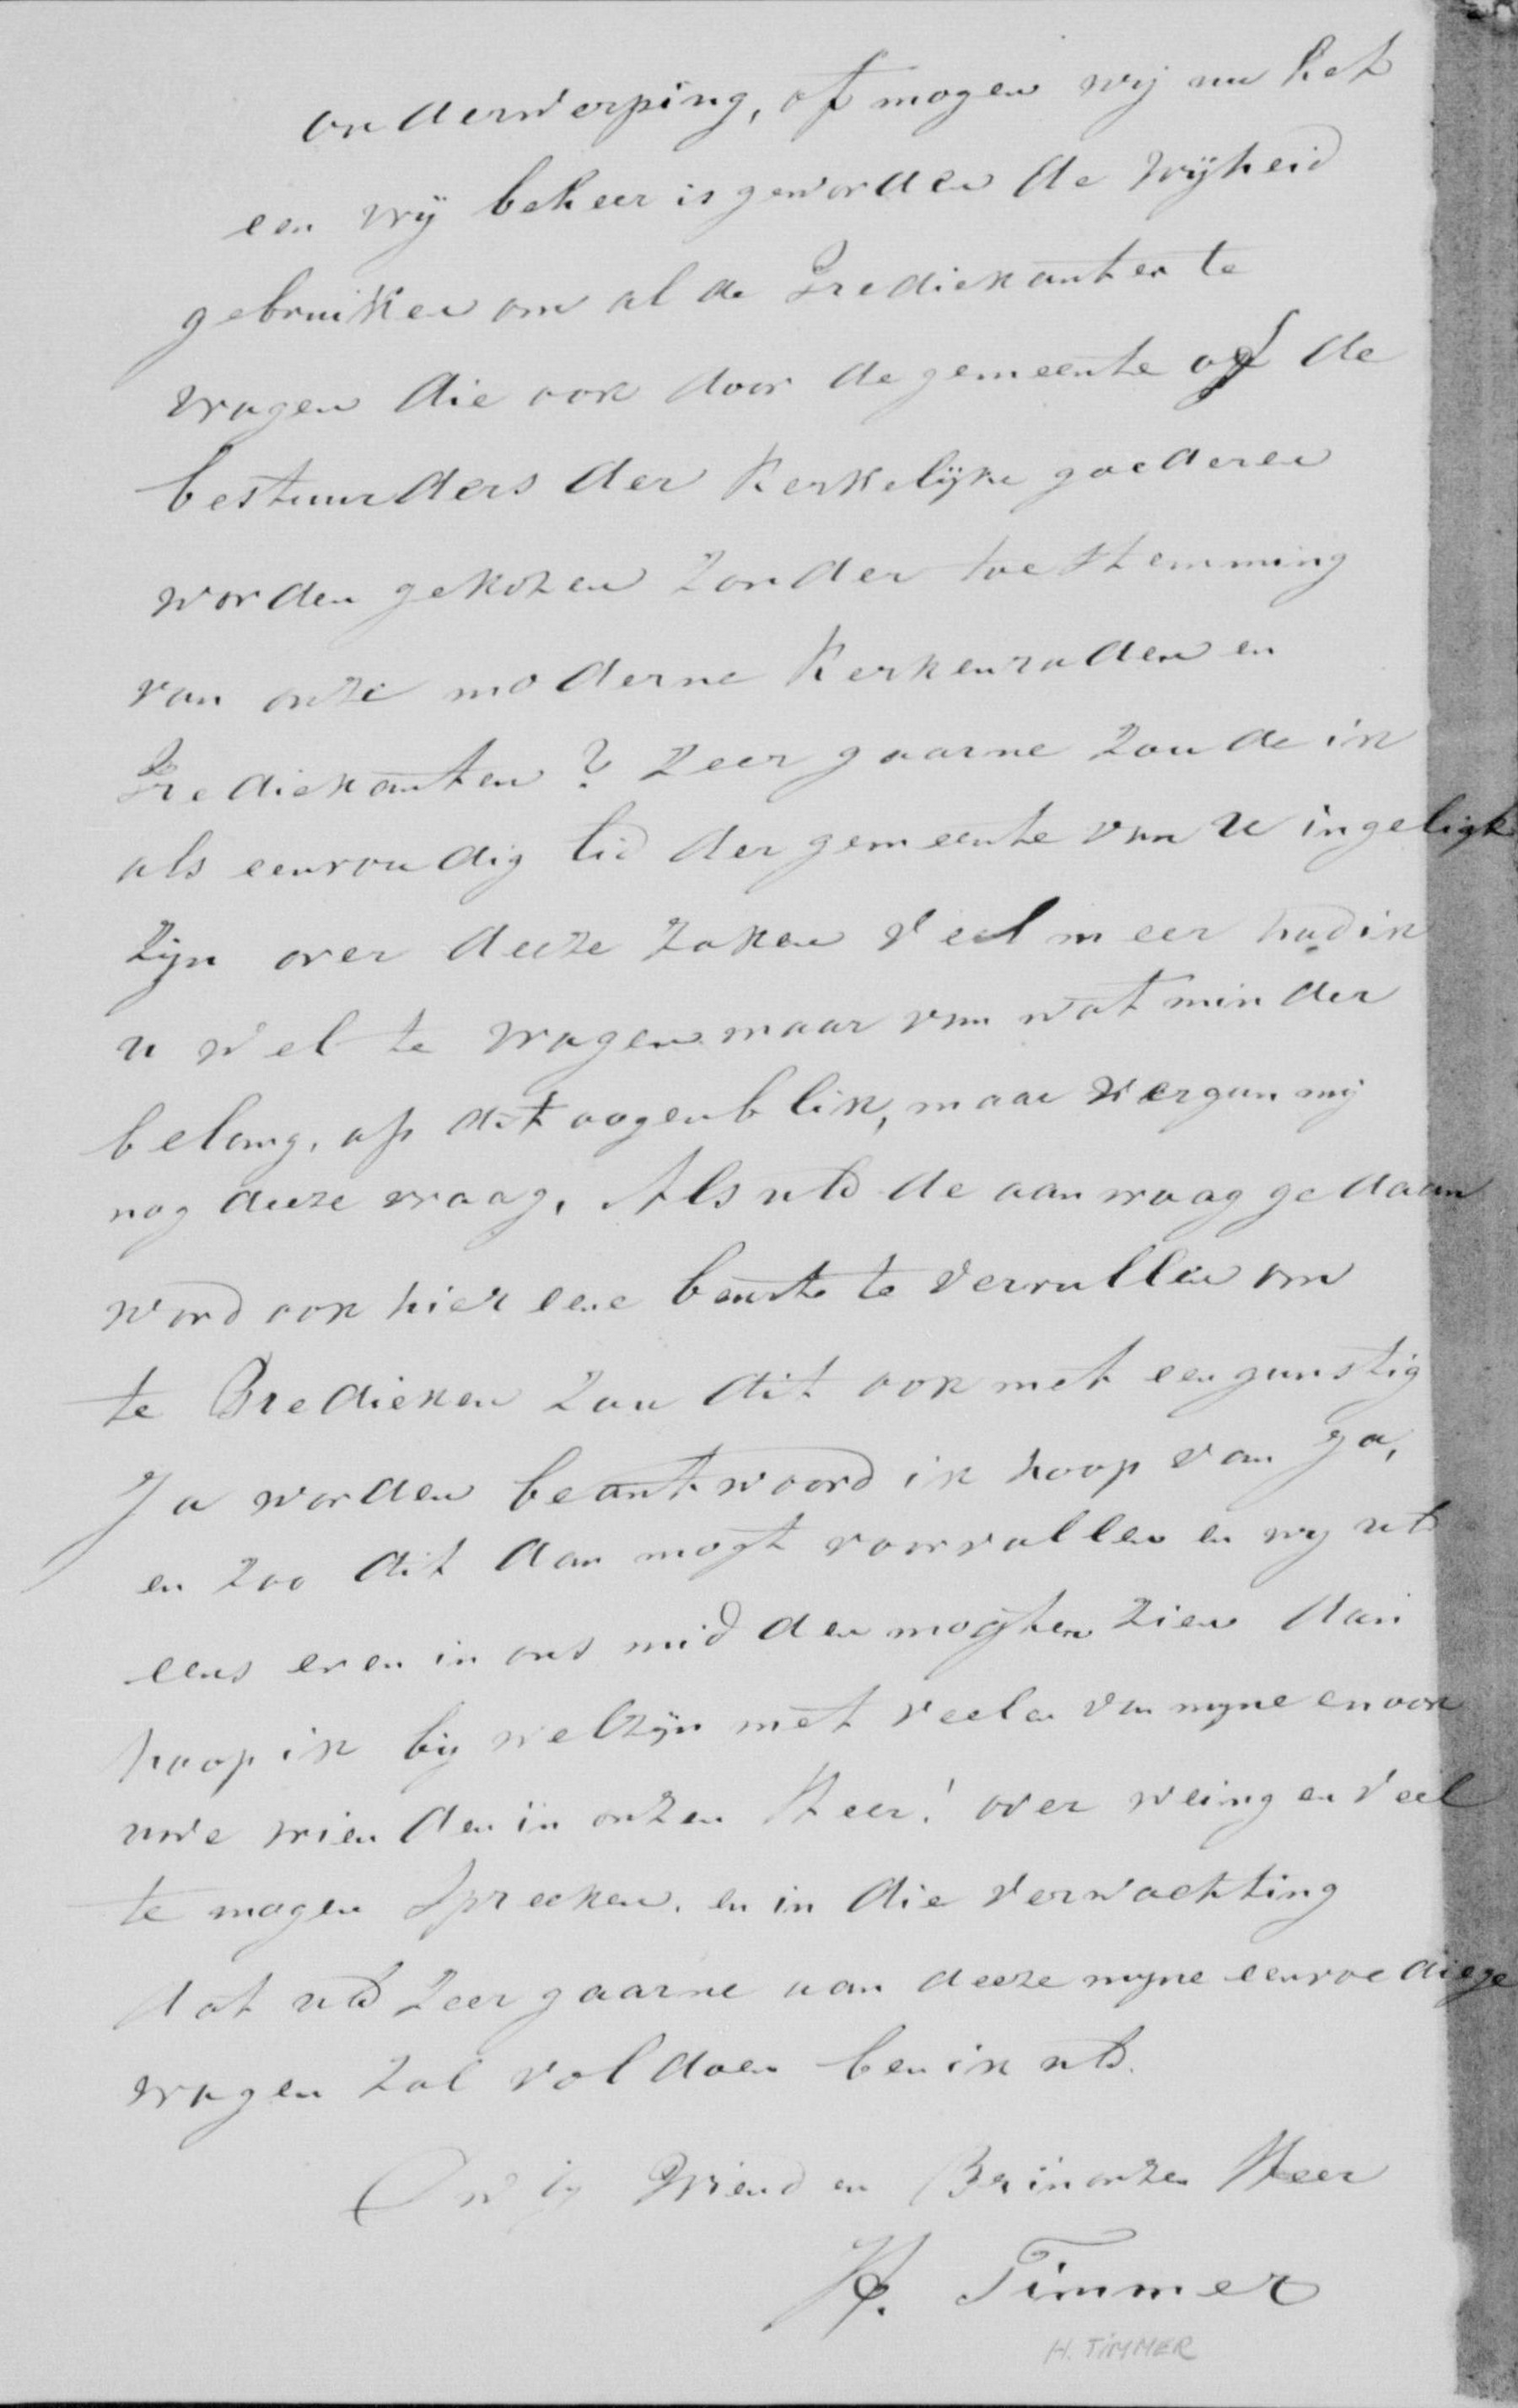 onderwerping, of mogen wij nu het
een vrij beheer is geworden de vrijheid
gebruiken om al de Predickanten te
vragen die ook door de gemeente of de
bestuurders der Kerkelijke goederen
worden gekozen zonder toestemming
van onze moderne Kerkenraden en
Predickanten? Zeer gaarne zoude ik
als eenvoudig lid der gemeente van U ingeligt
zijn over deeze zaken veel meer had ik
u wel te vragen maar van wat minder
belang, op dit oogenblik, maar vergun mij
nog deeze vraag, Als uEd de aanvraag gedaan
word ook hier eene beurte te vervullen om
te Predieken zou dit ook met een gunstig
Ja worden beantwoord ik hoop van Ja,
en zoo dit dan mogt voorvallen en wy uEd
eens even in ons midden mogten zien dan
hoop ik by welzijn met veele van myne en ook
uwe vrienden in onzen Heer! over weinig en veel
te mogen spreeken. en in die verwachting
dat uEd zeer gaarne aan deeze myne eenvoediege
vragen zal voldoen ben ik uEd.
Vriend en Br in onzen Heer
H. Timmer
H. TIMMER